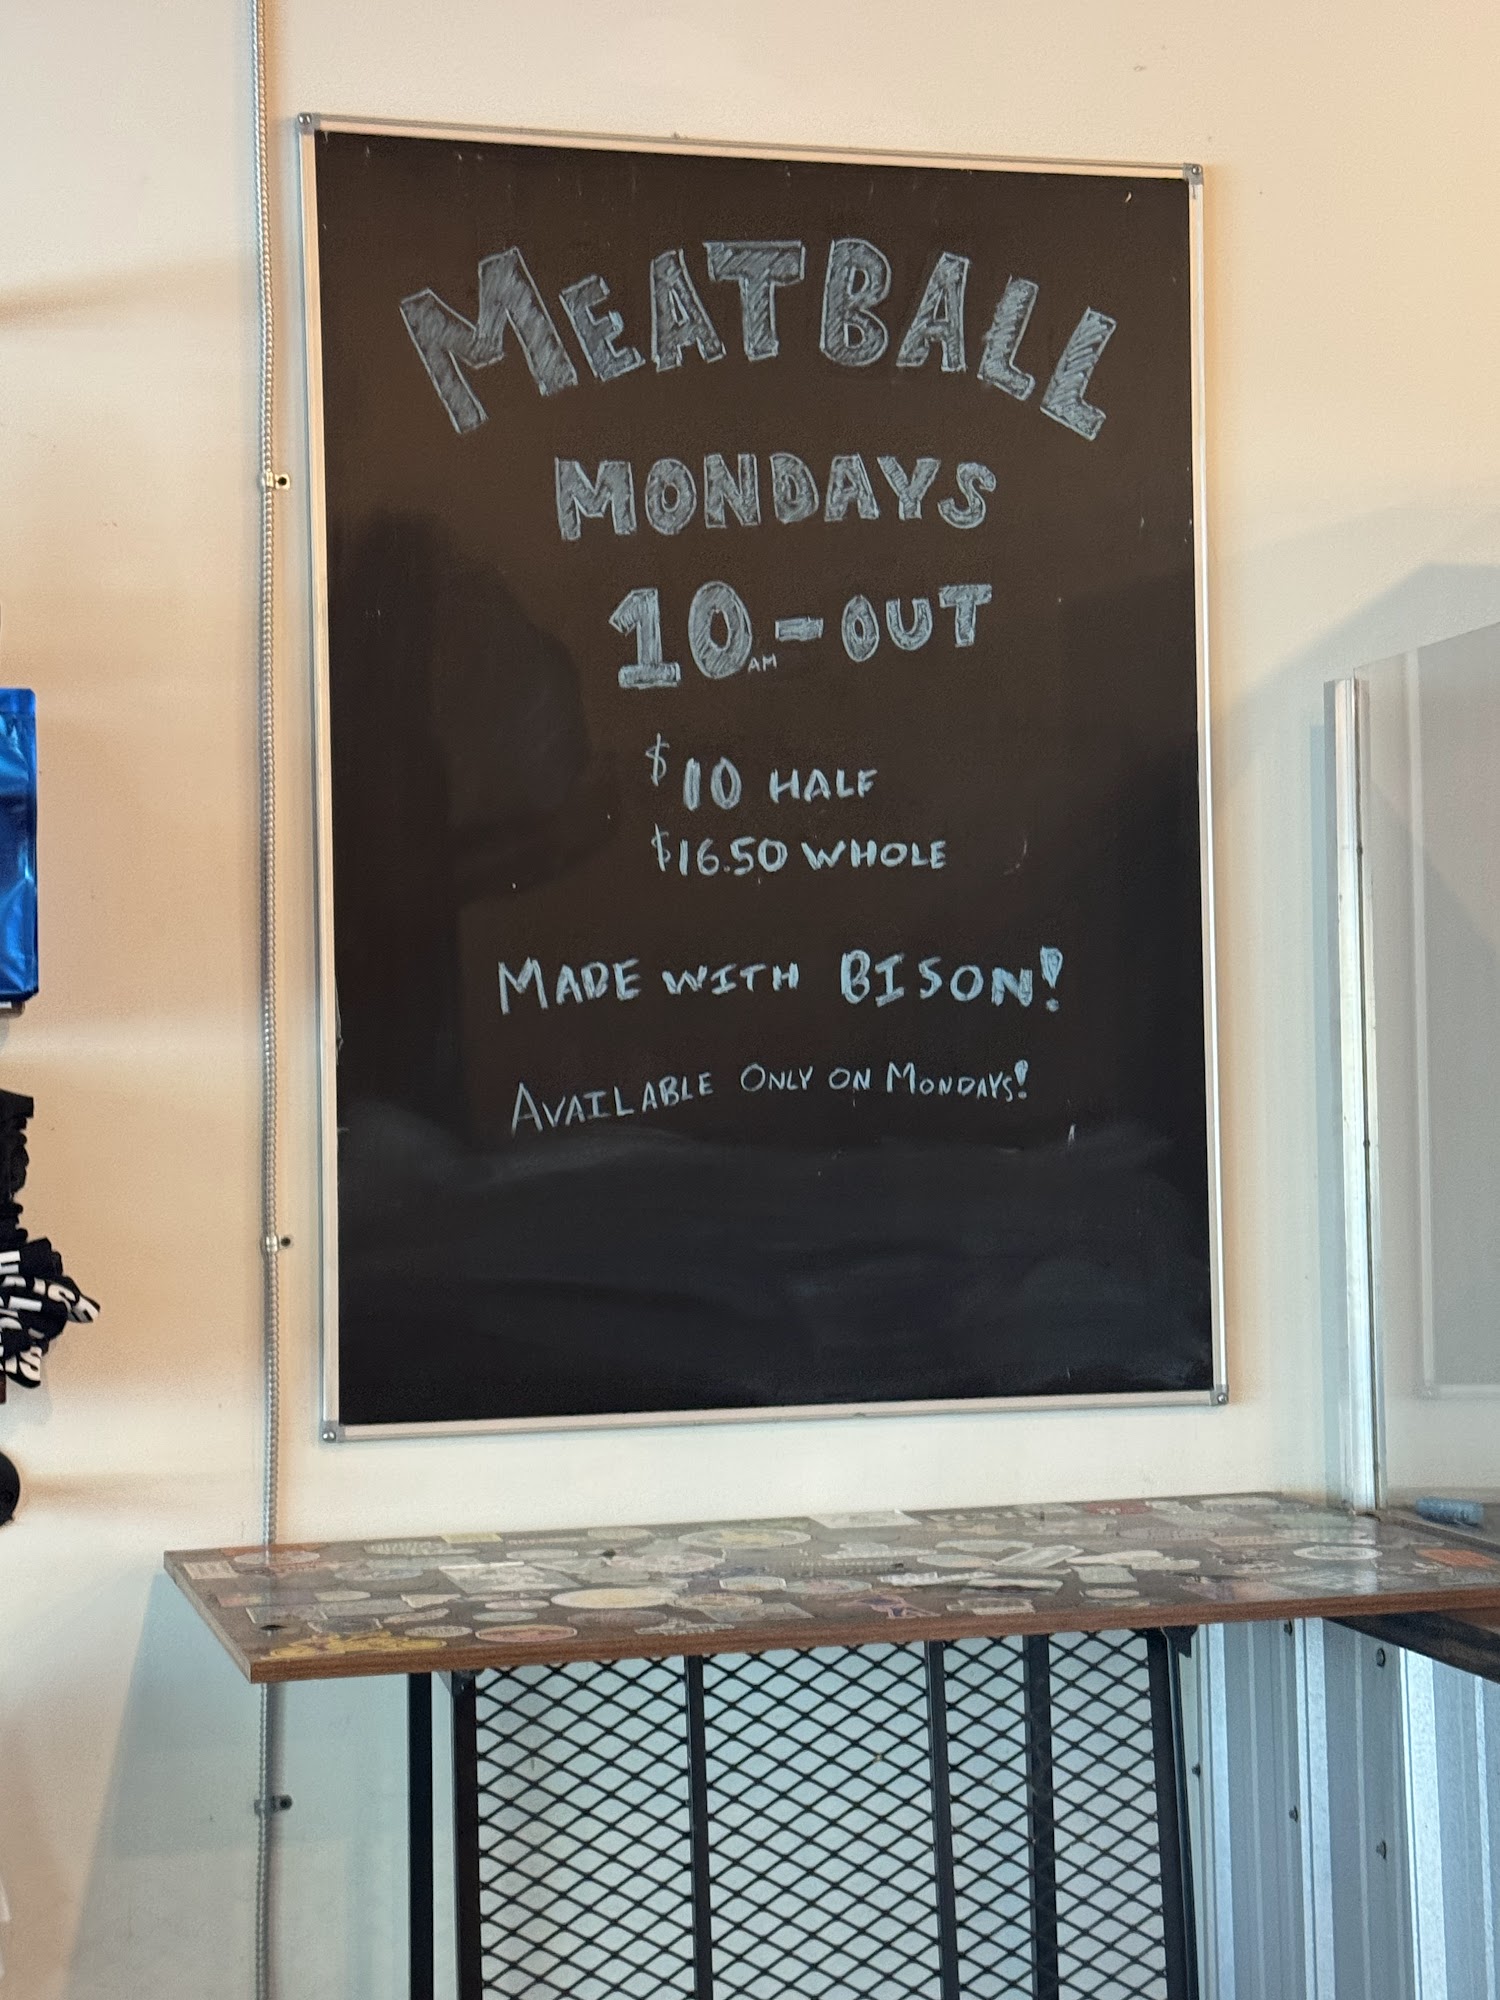 MEATBALL
MONDAYS
10AM-OUT
$10 HALF
$16.50 WHOLE
MADE WITH BISON!
AVAILABLE ONLY ON MONDAYS!